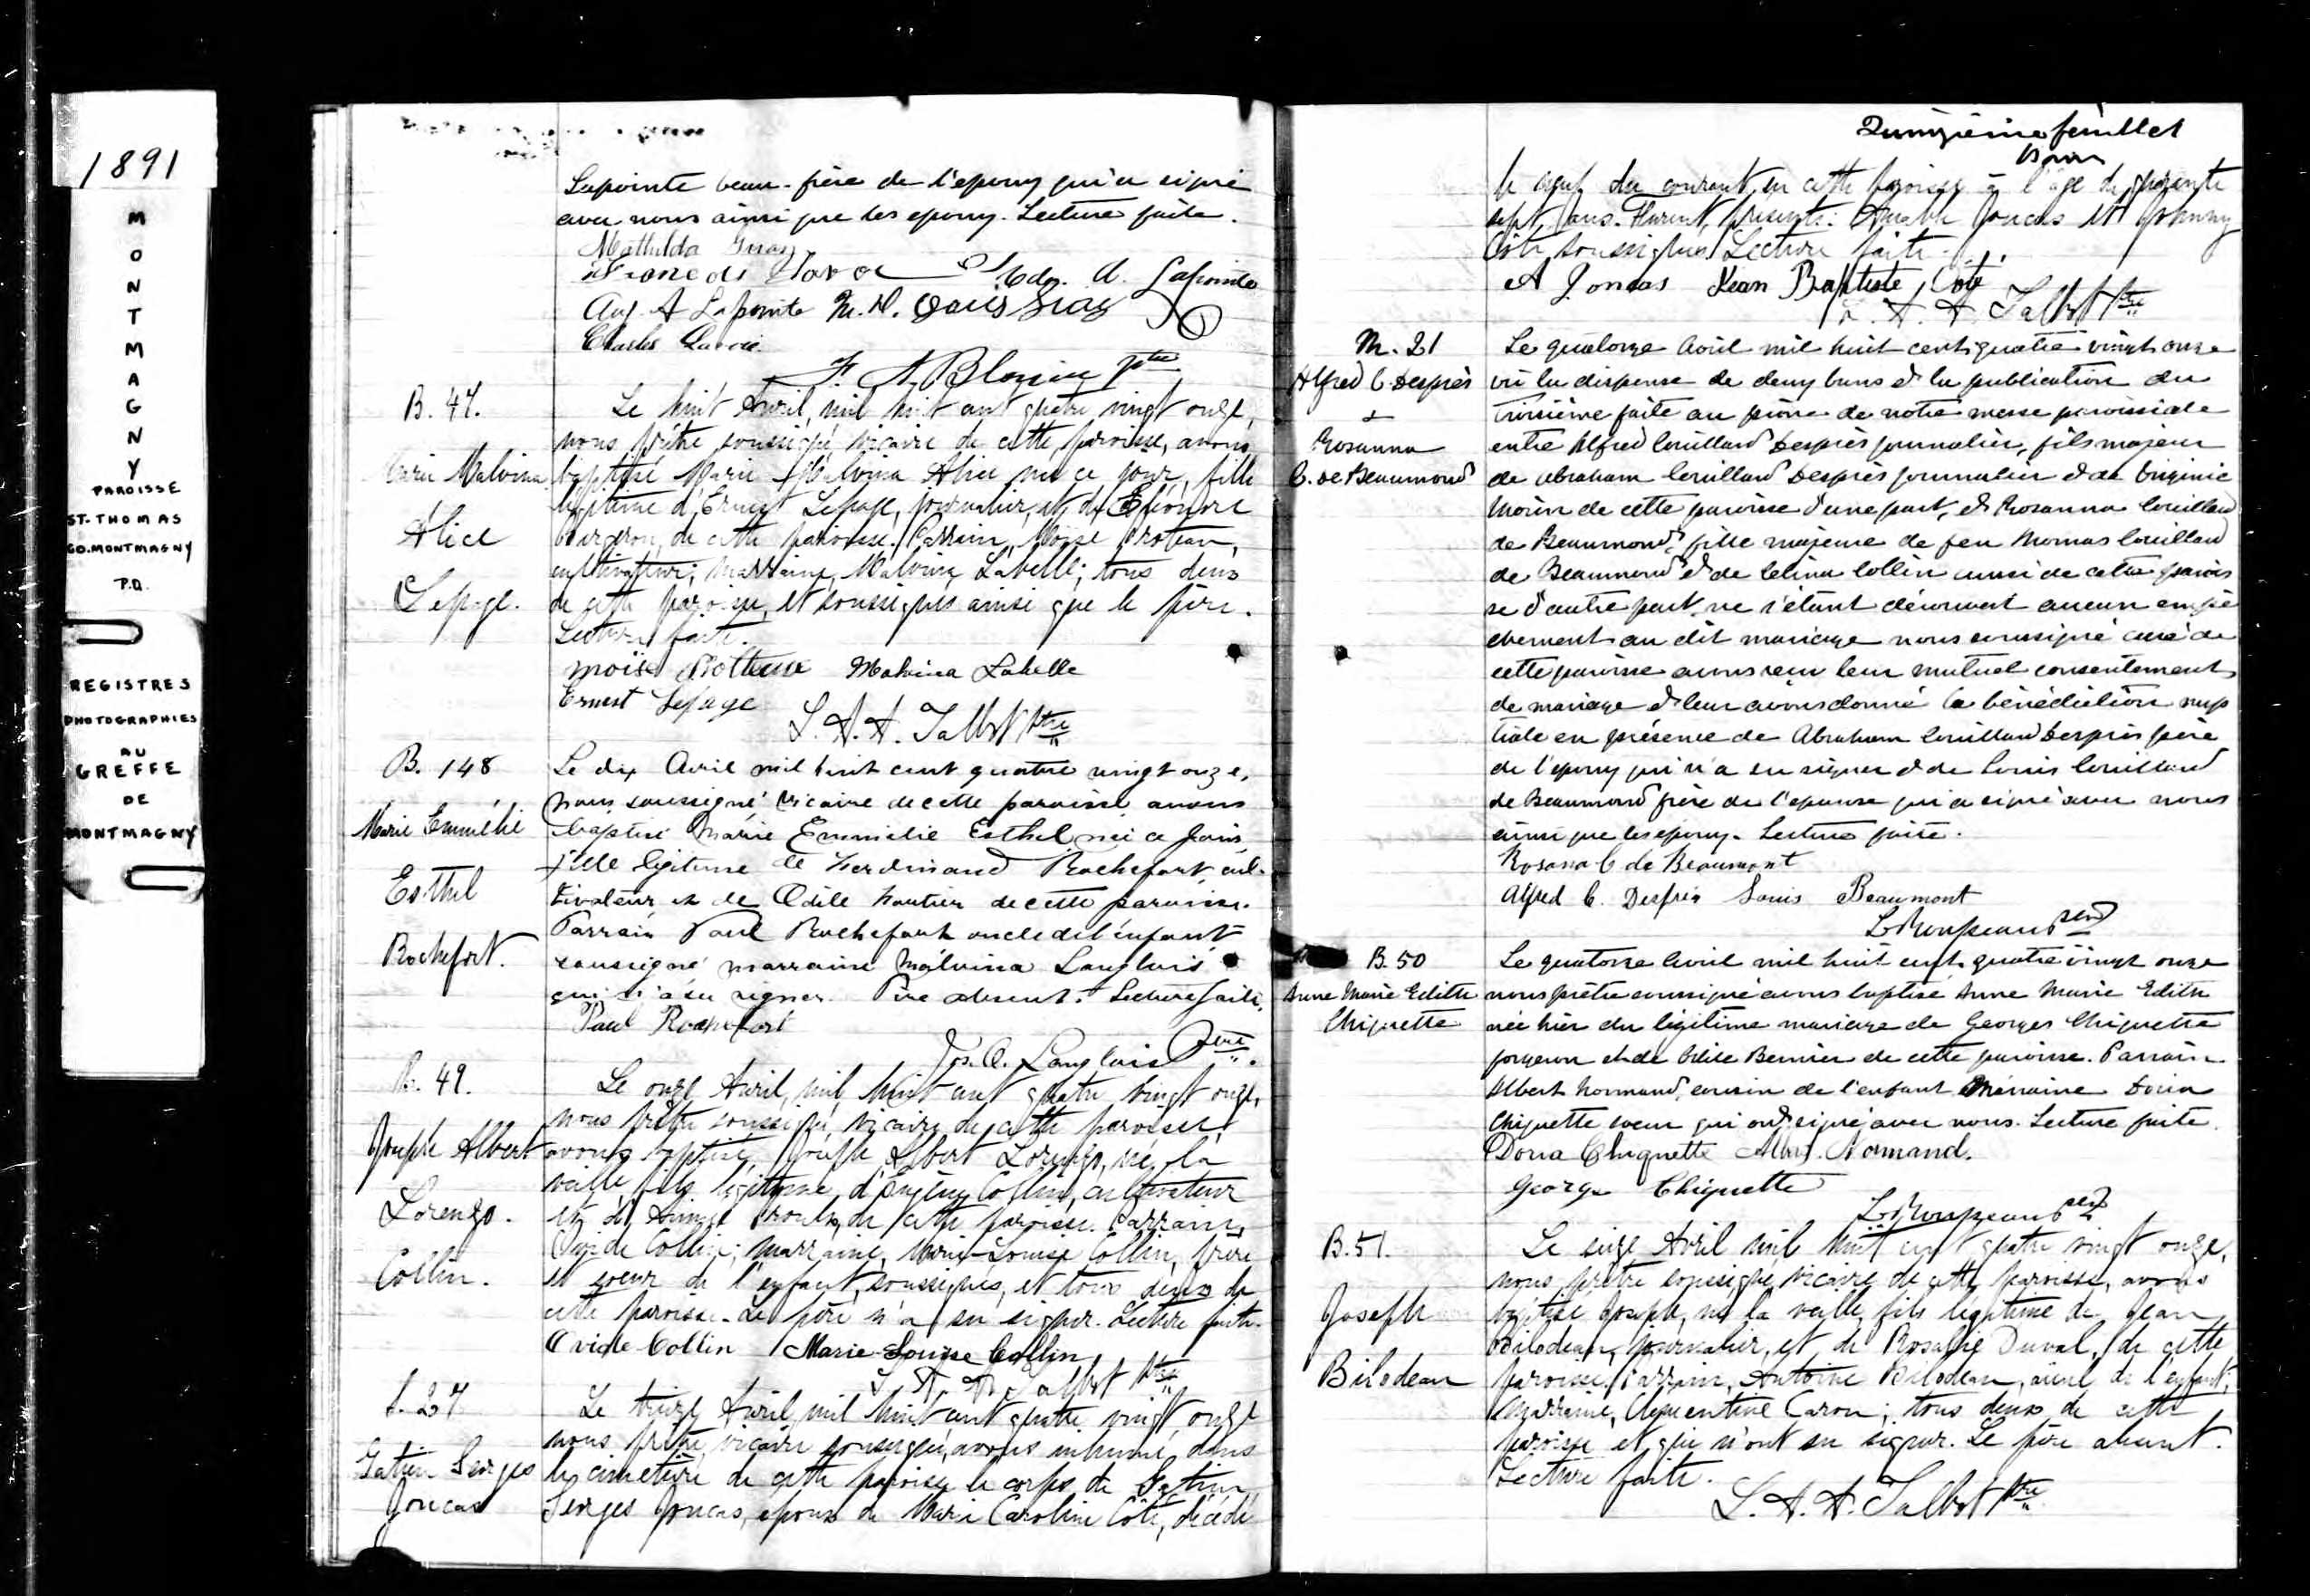 1891
M
O
N
T
M
A
G
N
Y
PAROISSE
ST. THOMAS
CO. MONTMAGNY
P.Q.
REGISTRES
PHOTOGRAPHIES
AU
GREFFE
DE
MONTMAGNY
Lapointe beau-frère de l'epoux qui a signé
avec nous ainsi que les epoux. Lecture faite.
Mathilda
A. Lapointe
Aug. A Lapointe M.D.
Charles Lavoie
Ptre
B. 47.
Marie Malvina
Alice
Lepage.
Le huit Avril, mil huit cent quatre vingt onze,
nous prêtre soussigné, vicaire de cette paroisse, avons
baptisé Marie Malvina Alice née ce jour, fille
légitime d'Ernest Lepage, journalier, et de
de cette paroisse. Parrain, Moïse Proteau,
cultivateur; marraine, Malvina Labelle; tous deux
de cette paroisse, et soussignés ainsi que le père.
Lecture faite.
Moïse Malvina Labelle
Ernest Lepage
L. A. A. Talbot Ptre
B. 148
Marie Emmélie
Esthel
Rochefort.
Le dix Avril mil huit cent quatre vingt onze,
nous soussigné vicaire de cette paroisse avons
baptisé Marie Emmelie Esthel née ce jour
fille légitime de Ferdinand Rochefort cul-
tivateur et de Odile de cette paroisse.
Parrain Paul Rochefort oncle de l'enfant
soussigné marraine Malvina Langlois
qui n'a su signer. Père absent. Lecture faite.
Paul Rochefort
Jos. O. Langlois Ptre
B. 49.
Joseph Albert
Lorenzo.
Collin.
Le onze Avril, mil huit cent quatre vingt onze,
nous prêtre soussigné, vicaire de cette paroisse,
avons baptisé, Joseph Albert Lorenzo, né la
veille, fils légitime d'Eugène Collin, cultivateur
et de Proulx, de cette paroisse. Parrain,
Ovide Collin; marraine, Marie-Louise Collin, frère
et soeur de l'enfant, soussignés, et tous deux de
cette paroisse. Le père n'a su signer. Lecture faite.
Ovide Collin Marie-Louise Collin
L. A. A. Talbot Ptre
S. 27
Gatien Serges
Joncas
Le treize Avril, mil huit cent quatre vingt onze
nous prêtre, vicaire soussigné, avons inhumé, dans
le cimetière de cette paroisse le corps de Gatien
Serges Joncas, epoux de Marie Caroline Côté, décédé
Quinzième feuillet
le neuf du courant, en cette paroisse à l'âge de quarante
sept ans. Furent présents: Amable Joncas et Johnny
Côté soussignés. Lecture faite.
A Joncas Jean Baptiste Coté
L. A. A. Talbot Ptre
M. 21
Alfred C. Després
&
Rosanna
C. de Beaumond
Le quatorze Avril mil huit cent quatre vingt onze
vu la dispense de deux bans & la publication du
troisième faite au prône de notre messe paroissiale
entre Alfred Couillard Després journalier, fils majeur
de Abraham Couillard Després journalier & de Virginie
Morin de cette paroisse d'une part, & Rosanna Couillard
de Beaumond, fille majeure de feu Thomas Couillard
de Beaumond & de Célina Collin aussi de cette parois
se d'autre part, ne s'étant découvert aucun empê
chement au dit mariage nous soussigné curé de
cette paroisse avons reçu leur mutuel consentement
de mariage & leur avons donné la bénédiction nup
tiale en présence de Abraham Couillard Després père
de l'epoux qui n'a su signer & de Louis Couillard
de Beaumond frère de l'epouse qui a signé avec nous
ainsi que les epoux. Lecture faite.
Rosana C de Beaumont
Alfred C. Després Louis Beaumont
B. 50
Anne Marie Edith
Chiquette
Le quatorze Avril mil huit cent quatre vingt onze
nous prêtre soussigné avons baptisé Anne Marie Edith
née hier du légitime mariage de Georges Chiquette
forgeron et de Bernier de cette paroisse. Parrain
Albert Normand, cousin de l'enfant Marraine Doria
Chiquette soeur qui ont signé avec nous. Lecture faite.
Doria Chiquette Albert Normand.
George Chiquette
B. 51.
Joseph
Bilodeau
Le seize Avril mil huit cent quatre vingt onze,
nous prêtre soussigné, vicaire de cette paroisse, avons
baptisé Joseph, né la veille, fils légitime de Jean
Bilodeau, journalier, et de Rosalie Duval, de cette
paroisse. Parrain, Antoine Bilodeau, aïeul de l'enfant;
Marraine, Clémentine Caron; tous deux de cette
paroisse et qui n'ont su signer. Le père absent.
Lecture faite.
L. A. A. Talbot Ptre